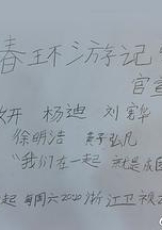 春环游记
官宣
欢开 杨迪 刘宇
徐明浩 黄子弘凡
"我们在一起 就是
起 每周六2020浙江卫视